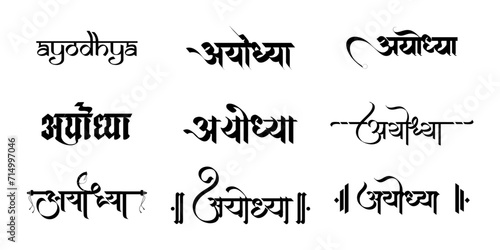 ayodhya अयोध्या अयोध्या
अयोध्या अयोध्या अयोध्या
अयोध्या ॥अयोध्या॥ ॥अयोध्या॥
Adobe Stock | #714997046